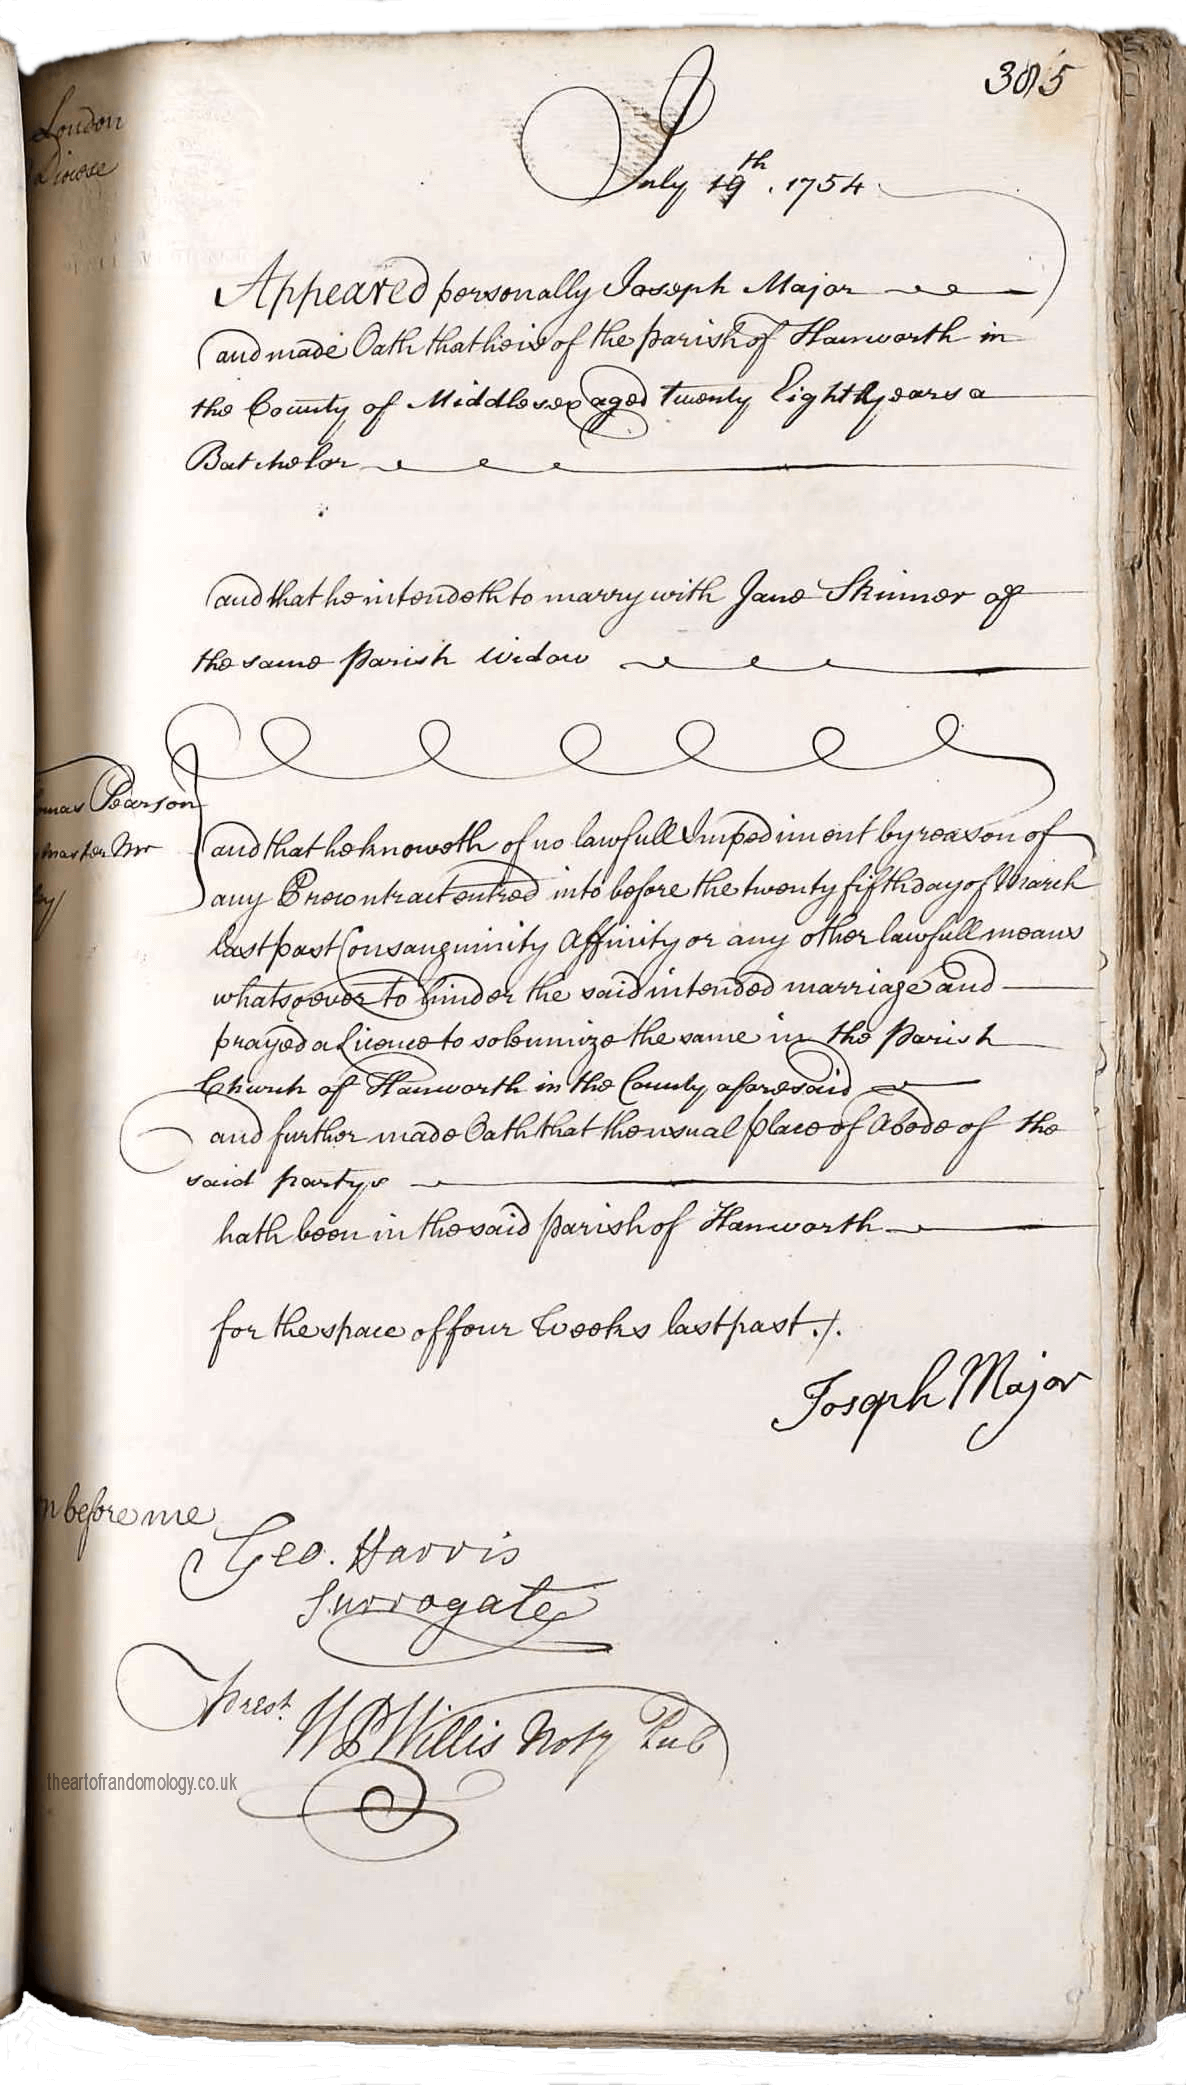 385
London
Diocese
July 19th. 1754
Appeared personally Joseph Major
and made Oath that he is of the parish of Hanworth in
the County of Middlesex aged twenty Eight years a
Batchelor
and that he intendeth to marry with Jane Skinner of
the same Parish Widow
omas Pearson
master Mr
and that he knoweth of no lawfull Impediment by reason of
any Precontract entred into before the twenty fifth day of March
last past Consanguinity Affinity or any other lawfull means
whatsoever to hinder the said intended marriage and
prayed a Licence to solemnize the same in the Parish
Church of Hanworth in the County aforesaid
and further made Oath that the usual place of Abode of the
said partys
hath been in the said parish of Hanworth
for the space of four Weeks last past ./.
Joseph Major
n before me
Geo. Harris
Surrogate
Prest.
WP Willis Noty Pub
theartofrandomology.co.uk